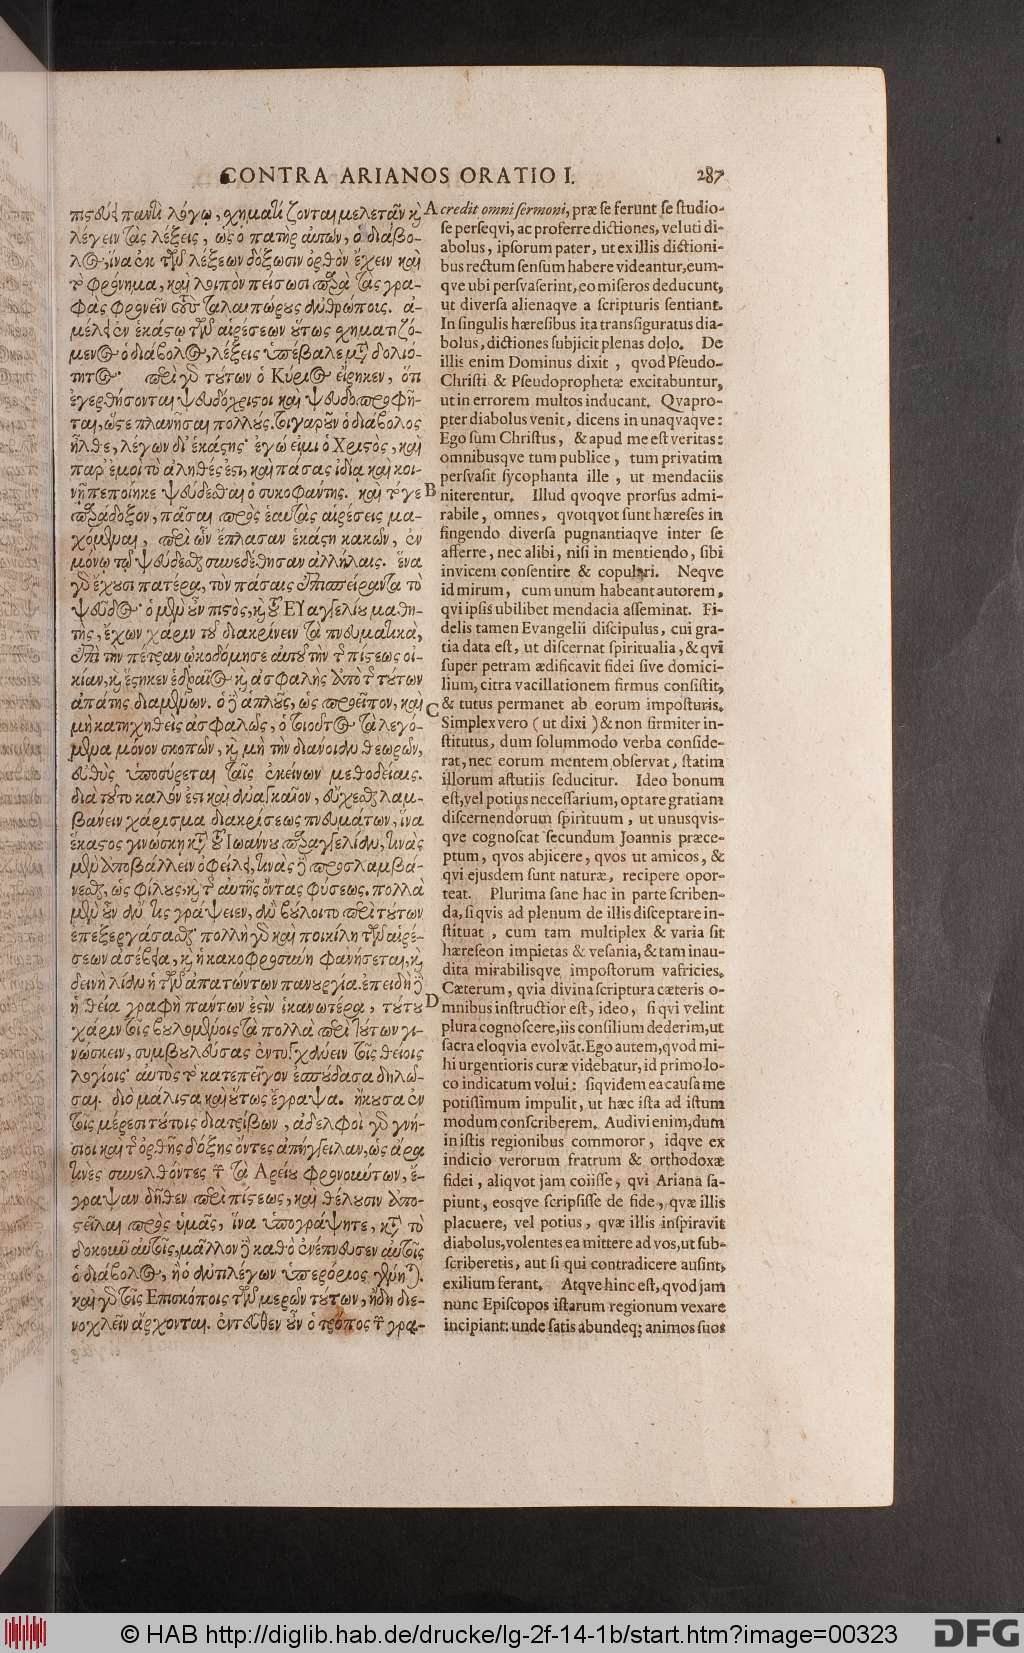 CONTRA ARIANOS ORATIO I. 287
πιστεύει παντὶ λόγῳ, σχηματίζονται μελετᾶν καὶ
λέγειν τὰς λέξεις, ὡς ὁ πατὴρ αὐτῶν, ὁ διάβο-
λος, ἵνα ἐκ τῶν λέξεων δόξωσιν ὀρθὸν ἔχειν καὶ
τὸ φρόνημα, καὶ λοιπὸν πείσωσι παρὰ τὰς γρα-
φὰς φρονεῖν τοὺς ταλαιπώρους ἀνθρώπους. ἀ-
μέλει ἐν ἑκάστῳ τῶν αἱρέσεων οὕτως σχηματιζό-
μενος ὁ διάβολος, λέξεις ὑπέβαλε μετὰ δολιό-
τητος· περὶ γὰρ τούτων ὁ Κύριος εἴρηκεν, ὅτι
ἐγερθήσονται ψευδόχριστοι καὶ ψευδοπροφῆ-
ται, ὥστε πλανῆσαι πολλούς. τιγαροῦν ὁ διάβολος
ἦλθε, λέγων δι' ἑκάστης· ἐγώ εἰμι ὁ Χριστὸς, καὶ
παρ' ἐμοὶ τὸ ἀληθές ἐστι, καὶ πάσας ἰδίᾳ καὶ κοι-
νῇ πεποίηκε ψεύδεσθαι ὁ συκοφάντης. καὶ τό γε
παράδοξον, πᾶσαι πρὸς ἑαυτὰς αἱρέσεις μα-
χόμεναι, περὶ ὧν ἔπλασαν ἑκάστη κακῶν, ἐν
μόνῳ τῷ ψεύδεσθαι συνεδέθησαν ἀλλήλαις. ἕνα
γὰρ ἔχουσι πατέρα, τὸν πάσαις ἐπισπείραντα τὸ
ψεῦδος· ὁ μὲν οὖν πιστὸς, καὶ τοῦ Εὐαγγελίου μαθη-
τὴς, ἔχων χάριν τοῦ διακρίνειν τὰ πνευματικὰ,
ἐπὶ τὴν πέτραν ᾠκοδόμησε αὐτοῦ τὴν τῆς πίστεως οἰ-
κίαν, καὶ ἕστηκεν ἑδραῖος καὶ ἀσφαλὴς ἀπὸ τῆς τούτων
ἀπάτης διαμένων. ὁ δὲ ἁπλοῦς, ὡς προεῖπον, καὶ
μὴ κατηχηθεὶς ἀσφαλῶς, ὁ τοιοῦτος τὰ λεγό-
μενα μόνον σκοπῶν, καὶ μὴ τὴν διάνοιαν θεωρῶν,
εὐθὺς ὑποσύρεται ταῖς ἐκείνων μεθοδείαις.
διὰ τοῦτο καλόν ἐστι καὶ ἀναγκαῖον, εὔχεσθαι λαμ-
βάνειν χάρισμα διακρίσεως πνευμάτων, ἵνα
ἕκαστος γινώσκῃ κατὰ τοῦ Ἰωάννου παραγγελίαν, τινὰς
μὲν ἀποβάλλειν ὀφείλει, τινὰς δὲ προσλαμβά-
νεσθαι, ὡς φίλους, καὶ τῆς αὐτῆς ὄντας φύσεως. πολλὰ
μὲν οὖν ἄν τις γράψειεν, ἂν βούλοιτο περὶ τούτων
ἐπεξεργάσασθαι· πολλὴ γὰρ καὶ ποικίλη τῶν αἱρέ-
σεων ἀσέβεια, καὶ ἡ κακοφροσύνη φανήσεται, καὶ
δεινὴ λίαν ἡ τῶν ἀπατώντων πανουργία. ἐπειδὴ δὲ
ἡ θεία γραφὴ πάντων ἐστὶν ἱκανωτέρα, τούτου
χάριν τοῖς βουλομένοις τὰ πολλὰ περὶ τούτων γι-
νώσκειν, συμβουλεύσας ἐντυγχάνειν τοῖς θείοις
λογίοις· αὐτὸς τὸ κατεπεῖγον ἐσπούδασα δηλῶ-
σαι. διὸ μάλιστα καὶ οὕτως ἔγραψα. ἤκουσα ἐν
τοῖς μέρεσι τούτοις διατρίβων, ἀδελφοὶ γὰρ γνή-
σιοι καὶ τῆς ὀρθῆς δόξης ὄντες ἀπήγγειλαν, ὡς ἄρα
τινὲς συνελθόντες τῶν τὰ Αρείου φρονούντων, ἔ-
γραψαν δῆθεν περὶ πίστεως, καὶ θέλουσιν ἀπο-
στεῖλαι πρὸς ὑμᾶς, ἵνα ὑπογράψητε, κατὰ τὸ
δοκοῦν αὐτοῖς, μᾶλλον δὲ καθὸ ἐνέπνευσεν αὐτοῖς
ὁ διάβολος, ἢ ὁ ἀντιλέγων ὑπερόριος γένηται.
καὶ γὰρ τοῖς Επισκόποις τῶν μερῶν τούτων, ἤδη διε-
νοχλεῖν ἄρχονται. ἐντεῦθεν οὖν ὁ τρόπος τῶν γρα-
A credit omni sermoni, præ se ferunt se studio-
se persequi, ac proferre dictiones, vel uti di-
abolus, ipsorum pater, ut ex illis dictioni-
bus rectum sensum habere videantur, eum-
qve ubi persvaserint, eo miseros deducunt,
ut diversa alienaqve a scripturis sentiant.
In singulis hæresibus ita transfiguratus dia-
bolus, dictiones subjicit plenas dolo. De
illis enim Dominus dixit, qvod Pseudo-
Christi & Pseudoprophetæ excitabuntur,
ut in errorem multos inducant. Qvapro-
pter diabolus venit, dicens in unaqvaqve:
Ego sum Christus, & apud me est veritas:
omnibusqve tum publice, tum privatim
persvasit sycophanta ille, ut mendaciis
B niterentur. Illud qvoqve prorsus admi-
rabile, omnes, qvotqvot sunt hæreses in
fingendo diversa pugnantiaqve inter se
afferre, nec alibi, nisi in mentiendo, sibi
invicem consentire & copulari. Neqve
id mirum, cum unum habeant autorem,
qvi ipsis ubilibet mendacia asseminat. Fi-
delis tamen Evangelii discipulus, cui gra-
tia data est, ut discernat spiritualia, & qvi
super petram ædificavit fidei sive domici-
lium, citra vacillationem firmus consistit,
C & tutus permanet ab eorum imposturis.
Simplex vero (ut dixi) & non firmiter in-
stitutus, dum solummodo verba conside-
rat, nec eorum mentem observat, statim
illorum astutiis seducitur. Ideo bonum
est, vel potius necessarium, optare gratiam
discernendorum spirituum, ut unusqvis-
qve cognoscat secundum Joannis præce-
ptum, qvos abjicere, qvos ut amicos, &
qvi ejusdem sunt naturæ, recipere opor-
teat. Plurima sane hac in parte scriben-
da, si qvis ad plenum de illis disceptare in-
stituat, cum tam multiplex & varia sit
hæreseon impietas & vesania, & tam inau-
dita mirabilisqve impostorum vafricies.
Cæterum, qvia divina scriptura cæteris o-
D mnibus instructior est, ideo, si qvi velint
plura cognoscere, iis consilium dederim, ut
sacra eloqvia evolvāt. Ego autem, qvod mi-
hi urgentioris curæ videbatur, id primo lo-
co indicatum volui: siqvidem ea causa me
potissimum impulit, ut hæc ista ad istum
modum conscriberem. Audivi enim, dum
in istis regionibus commoror, idqve ex
indicio verorum fratrum & orthodoxæ
fidei, aliqvot jam coiisse, qvi Ariana sa-
piunt, eosqve scripsisse de fide, qvæ illis
placuere, vel potius, qvæ illis inspiravit
diabolus, volentes ea mittere ad vos, ut sub-
scriberetis, aut si qui contradicere ausint,
exilium ferant. Atqve hinc est, qvod jam
nunc Episcopos istarum regionum vexare
incipiant: unde satis abundeq; animos suos
© HAB http://diglib.hab.de/drucke/lg-2f-14-1b/start.htm?image=00323 DFG